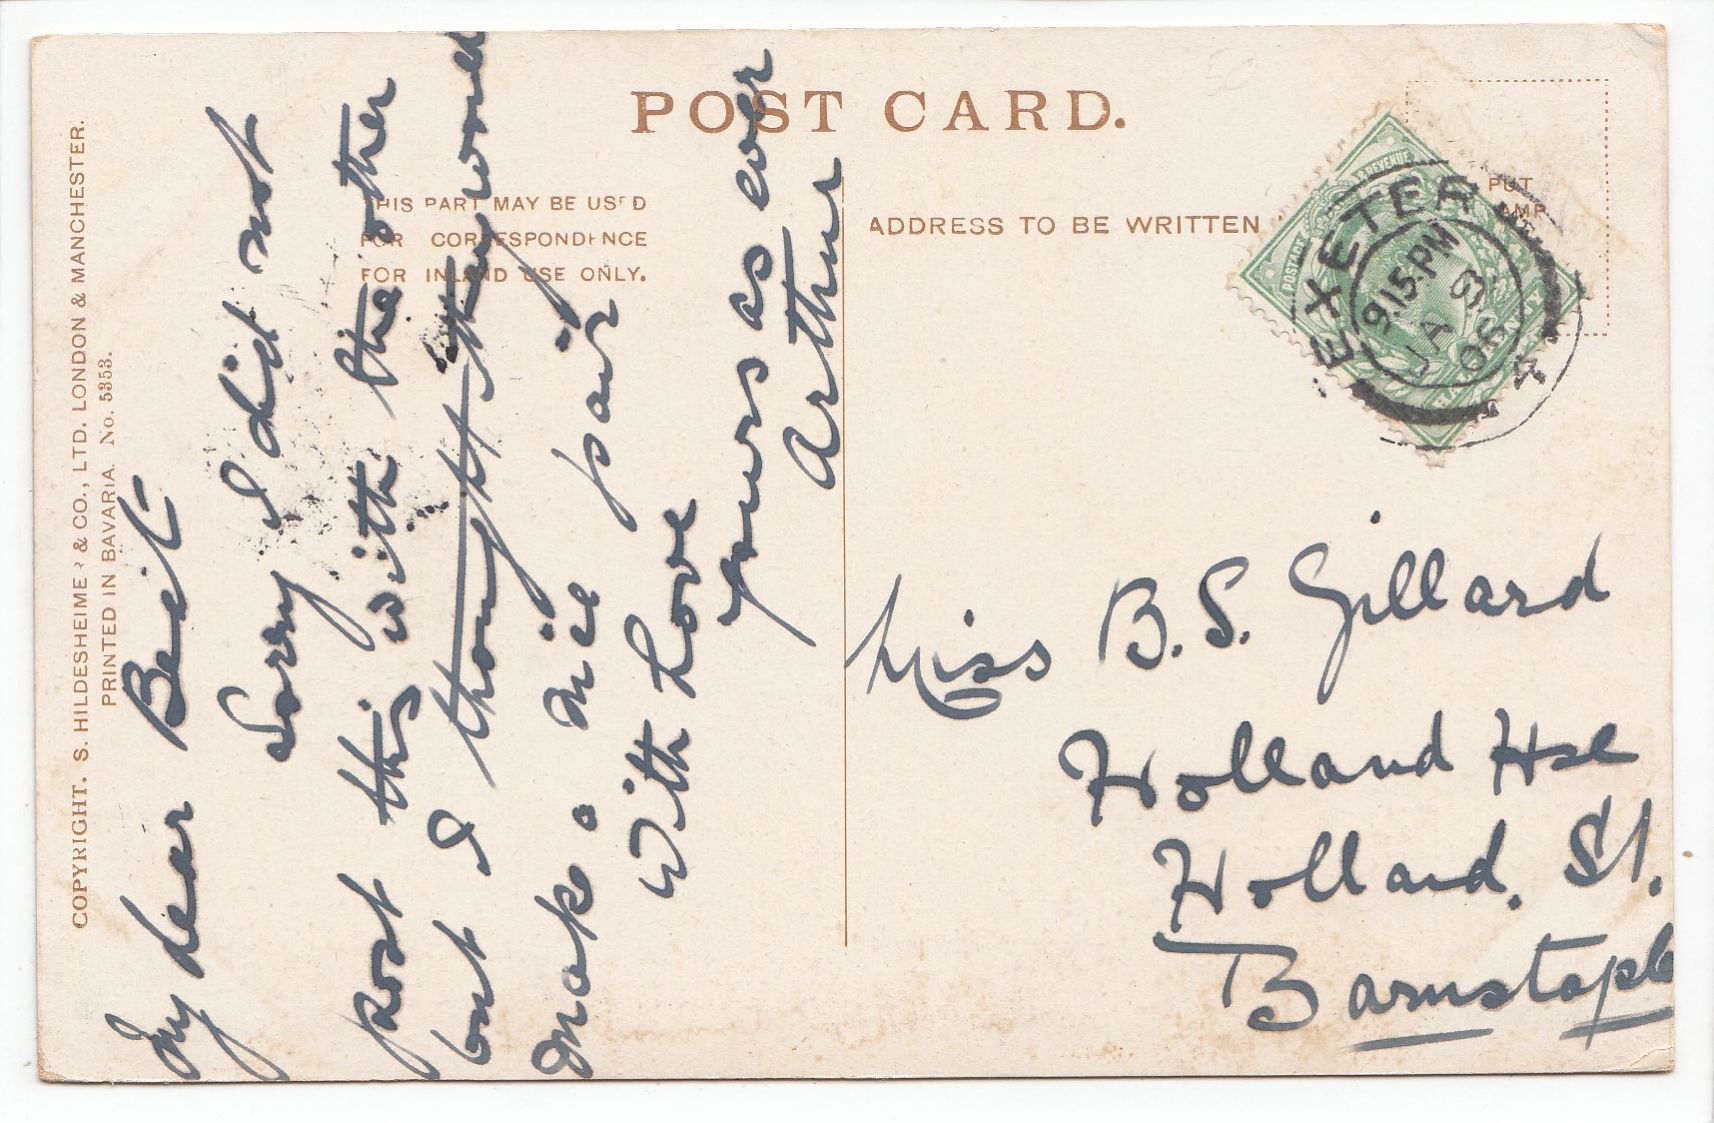 POST CARD.
THIS PART MAY BE USED
FOR CORRESPONDENCE
FOR INLAND USE ONLY.
ADDRESS TO BE WRITTEN
PUT
COPYRIGHT. S. HILDESHEIMER & CO., LTD. LONDON & MANCHESTER.
PRINTED IN BAVARIA. No. 5353.
My dear Beat-
Sorry I did not
post this with the other
but I thought they would
make a nice pair
With Love
yours as ever
Arthur
POSTAGE REVENUE
EXETER
9.15.PM
JA 3
06
4
Miss B.S. Gillard
Holland Hse
Holland. St.
Barnstaple